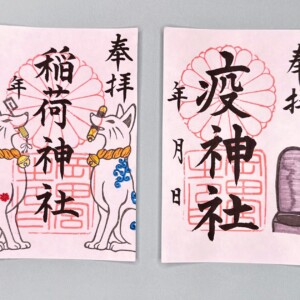 奉拝
稲荷神社
年
奉拝
疫神社
年月日